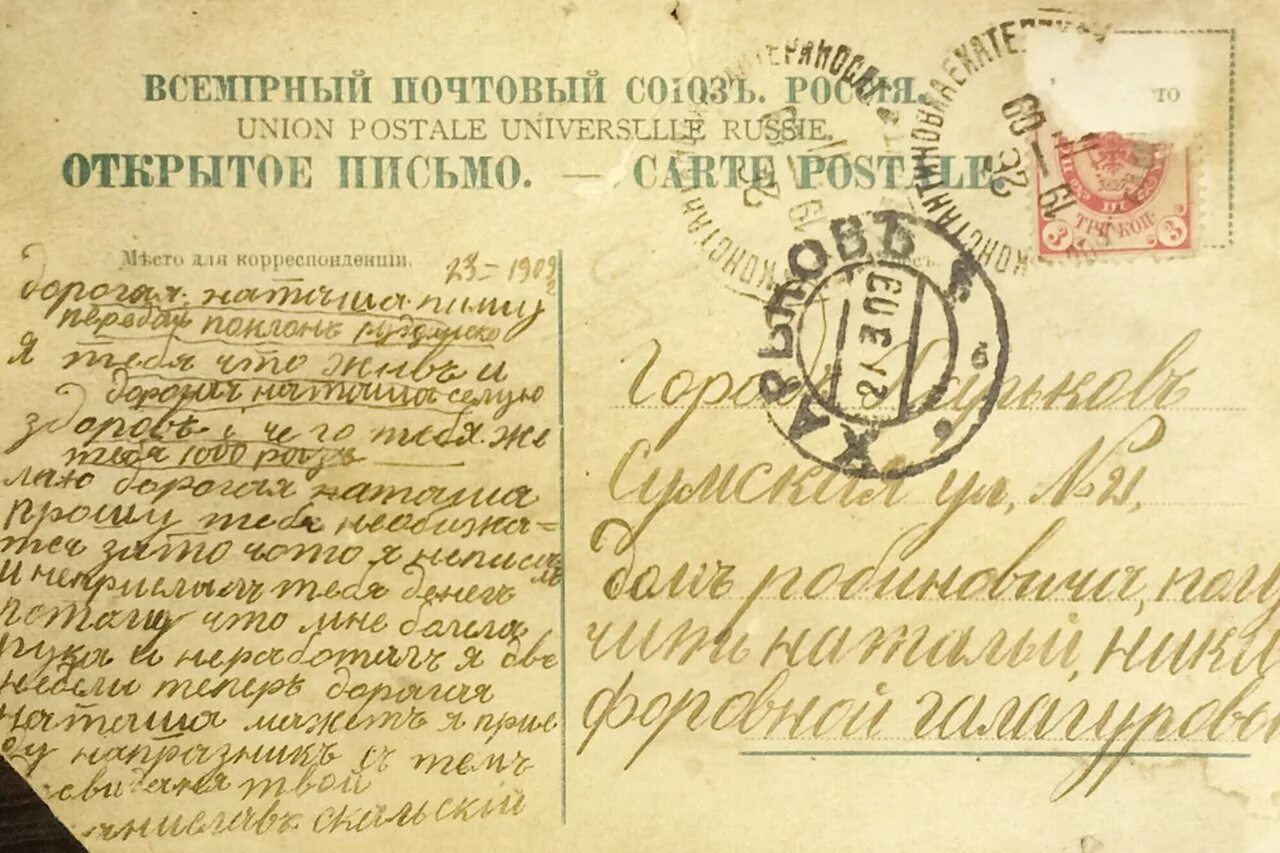 ВСЕМІРНЫЙ ПОЧТОВЫЙ СОЮЗЪ. РОССІЯ.
UNION POSTALE UNIVERSELLE RUSSIE.
ОТКРЫТОЕ ПИСЬМО. — CARTE POSTALE
Мѣсто для корреспонденціи.
23–1909
дорогая наташа пишу
первай поклонъ
я тебя что живъ и
дорогая наташа целую
здоровъ и чего тебя же
тебя 1000 разъ
лаю дорогая наташа
прошу тебя необижа=
тса зато чото я неписалъ
и неприслалъ тебя денегъ
потому что мне болела
рука и неработалъ я две
недели теперъ дорогая
наташа мажетъ я прие
ду напразникъ с темъ
свиданя твой
аниславъ скальскій
Городъ Харьковъ
Сумская ул, №21,
Домъ робиновича, полу
чить наталъй, ники
форовной галагуровой
ХАРЬКОВЪ
21 3 09
6
КОНСТАНТИНОВКА ЕКАТЕР
19
09
3 ТРИ КОП. 3
ТО